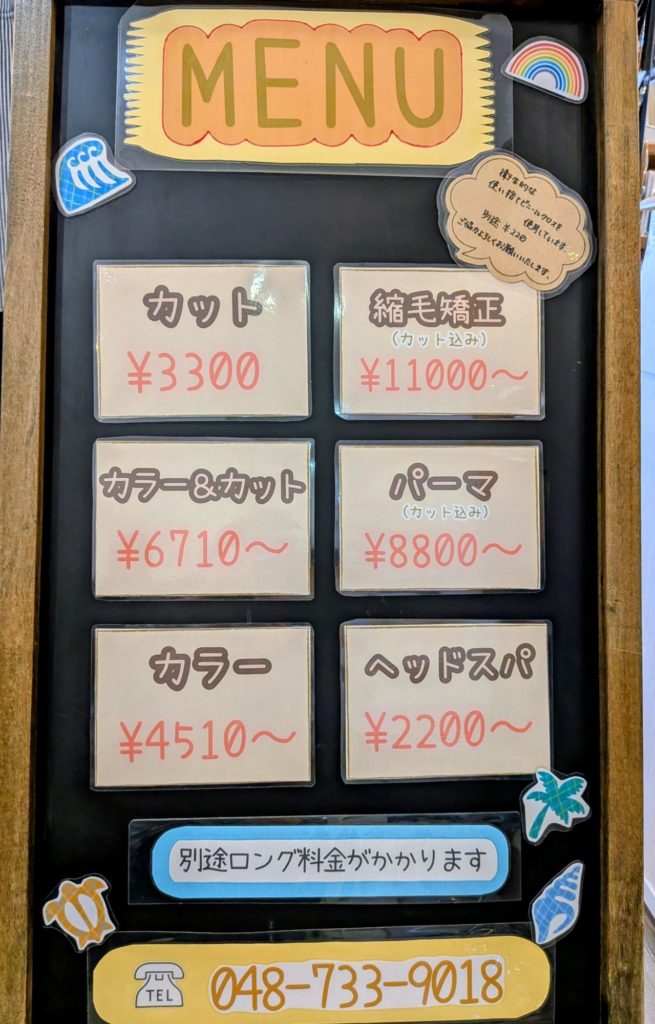 MENU
衛生的な
使い捨てビニールクロスを
使用しています
別途 ¥220
ご協力よろしくお願いいたします。
カット
¥3300
縮毛矯正
(カット込み)
¥11000〜
カラー&カット
¥6710〜
パーマ
(カット込み)
¥8800〜
カラー
¥4510〜
ヘッドスパ
¥2200〜
別途ロング料金がかかります
TEL
048-733-9018